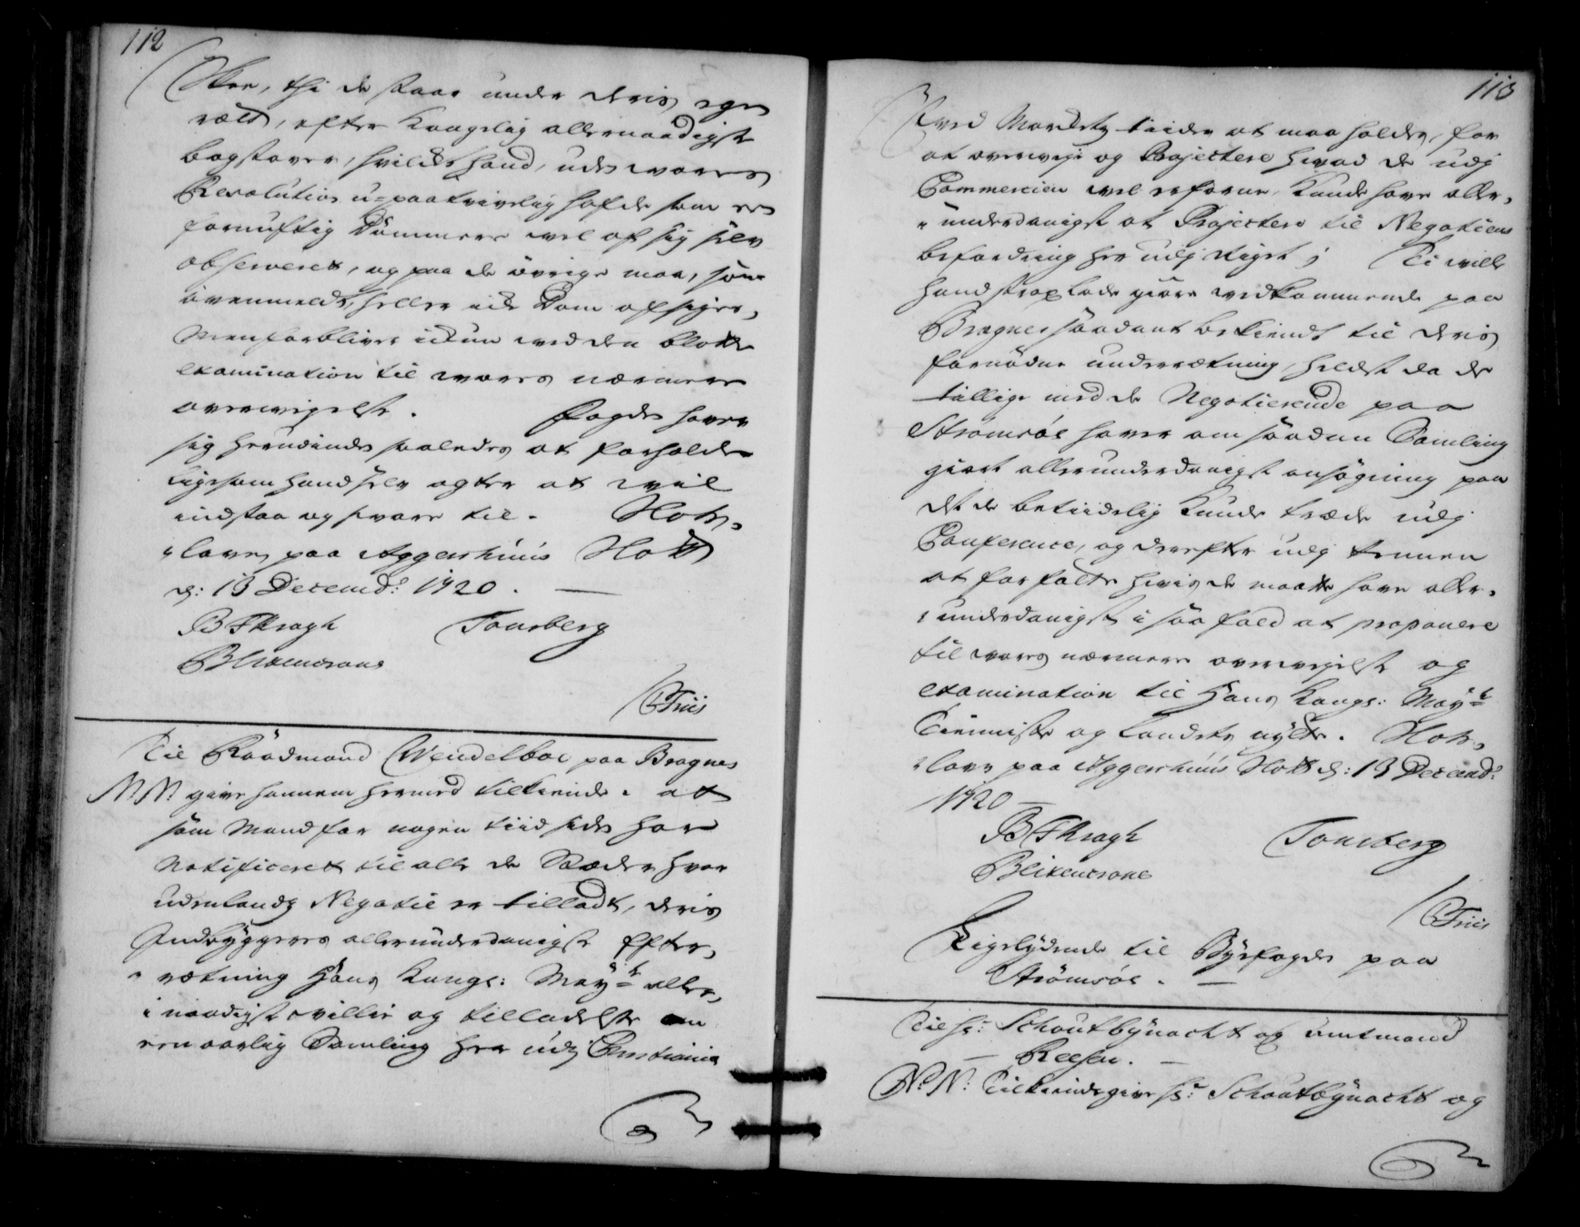 112
Skee, thi de staar under deris egen
væld, efter Kongelig allernaadigst
bogstaver, hvilcket hand, uden vores
Resolution u-paatvivelig hafde som een
fornuftig Dommere vel af sig self
observeret, og paa de øvrige maa, som
ovenmeldt, heller icke Dom afsiges,
Men forbliver ickun ved den blotte
examination til vores nærmere
overveyelse. Fogden haver
sig herudinden saaledes at forholde
ligesom hand self agter at vil
indstaa og svare til. Slotz-
loven paa Aggershuus Slott
d: 13 Decemb: 1720.
B F Kragh Tonsberg
Blixencrone
C Friis
Til Raadmand Wendelboe paa Bragnes
N: N: give hannem hermed tilkiende, at
som Mand for nogen tiid siden har
Notificeret til alle de Stæder hvor
udenlands Negotie er tilladt, deris
Indbyggeres allerunderdanigst Efter-
rætning Hans Kongl: May:ts aller-
naadigst villie og tilladelse om
een aarlig Samling her udj Christiania
113
ved Markets tiider at maa holdes, for
at overveye og Projectere hvad de udj
Commercien vel erfarne kunde have aller-
underdanigst at Projectere til Negotiens
befordring her udj Riget; Ti ville
hand strax lade giøre vedkommende paa
Bragnes saadant bekiendt til deris
fornødne underrætning, helst da de
tillige med de Negotierende paa
Strømsøe haver om saadan Samling
giort allerunderdanigst ansøgning paa
det de betiidelig kunde træde udj
Conference, og derefter udj pennen
at forfatte hvis de maatte have aller-
underdanigst i saa fald at proponere
til vores nærmere overveyelse og
examination til Hans Kongl: May:ts
Tienniste og Landets nytte. Slotz-
loven paa Aggershuus Slott d: 13 Decemb:
1720
B F Kragh Tonsberg
Blixencrone
C Friis
Ligelydende til Byefogden paa
Strømsøe.
Til Hr: Schoutbynacht og amtmand
Reesen.
N: N: Tilkiendegive Hr: Schoutbynacht og